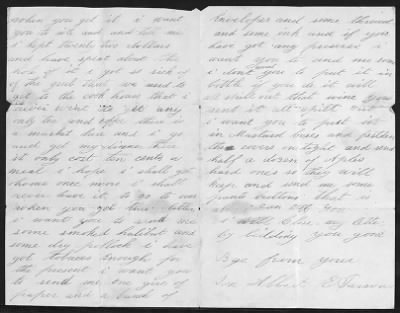 when you get it i want
you to rite and and let me
i kept twenty two dollars
and have spent about the
of it i got so sick of
of the grub that we used to
get at the cook house that i
never went to get any
only tea and coffee there is
a market here and i go
and get my dinner there
it only cost ten cents a
meal i hope i shall get
home once more i shall
never have it to go to war
when you get this letter
i want you to send me
some smoked halibut and
some dry pollock i have
got tobacco enough for
the present i want you
to send me one quire of
paper and a bunch of
Envelopes and some thread
and some ink and if you
have got any preserves i
want you to send me some
i dont you to put it in
bottle if you do it will
all
sent it all spilt out
i want you to put it
in Mustard boxes and
the covers on tight and send
half a dozen of Aples
hard ones so they will
keep and send me some
pants buttons that is
all
i will Close my letter
by bidding you good
Bye from your
Son Albert E